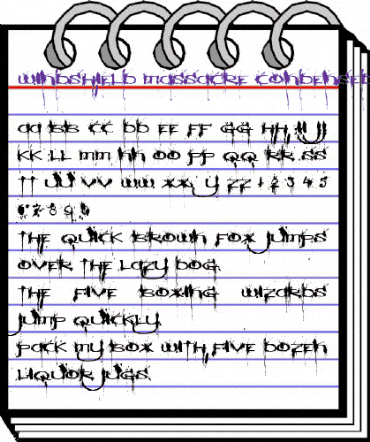 Windshield Massacre Condensed
aA bB cC dD eE fF gG hH iI jJ
kK lL mM nN oO pP qQ rR sS
tT uU vV wW xX yY zZ 1 2 3 4 5
6 7 8 9 0
The quick brown fox jumps
over the lazy dog.
The five boxing wizards
jump quickly.
Pack my box with five dozen
liquor jugs.